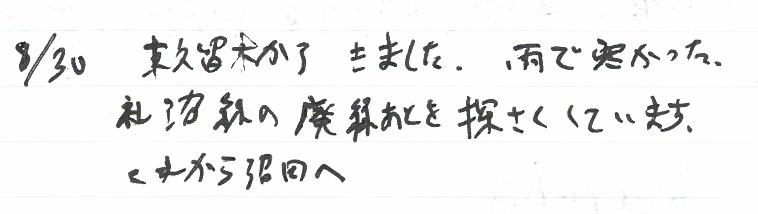 8/30 東久留米から きました. 雨で寒かった.
札沼線の廃線あとを探さくしています.
これから沼田へ